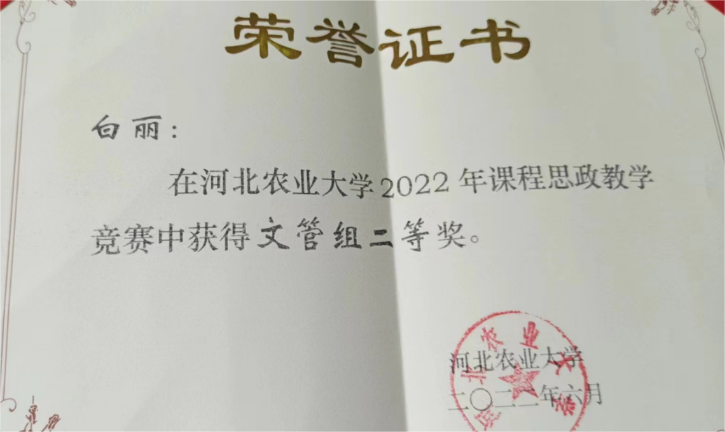 荣誉证书
白丽：
在河北农业大学2022年课程思政教学
竞赛中获得文管组二等奖。
河北农业大学
二〇二二年六月